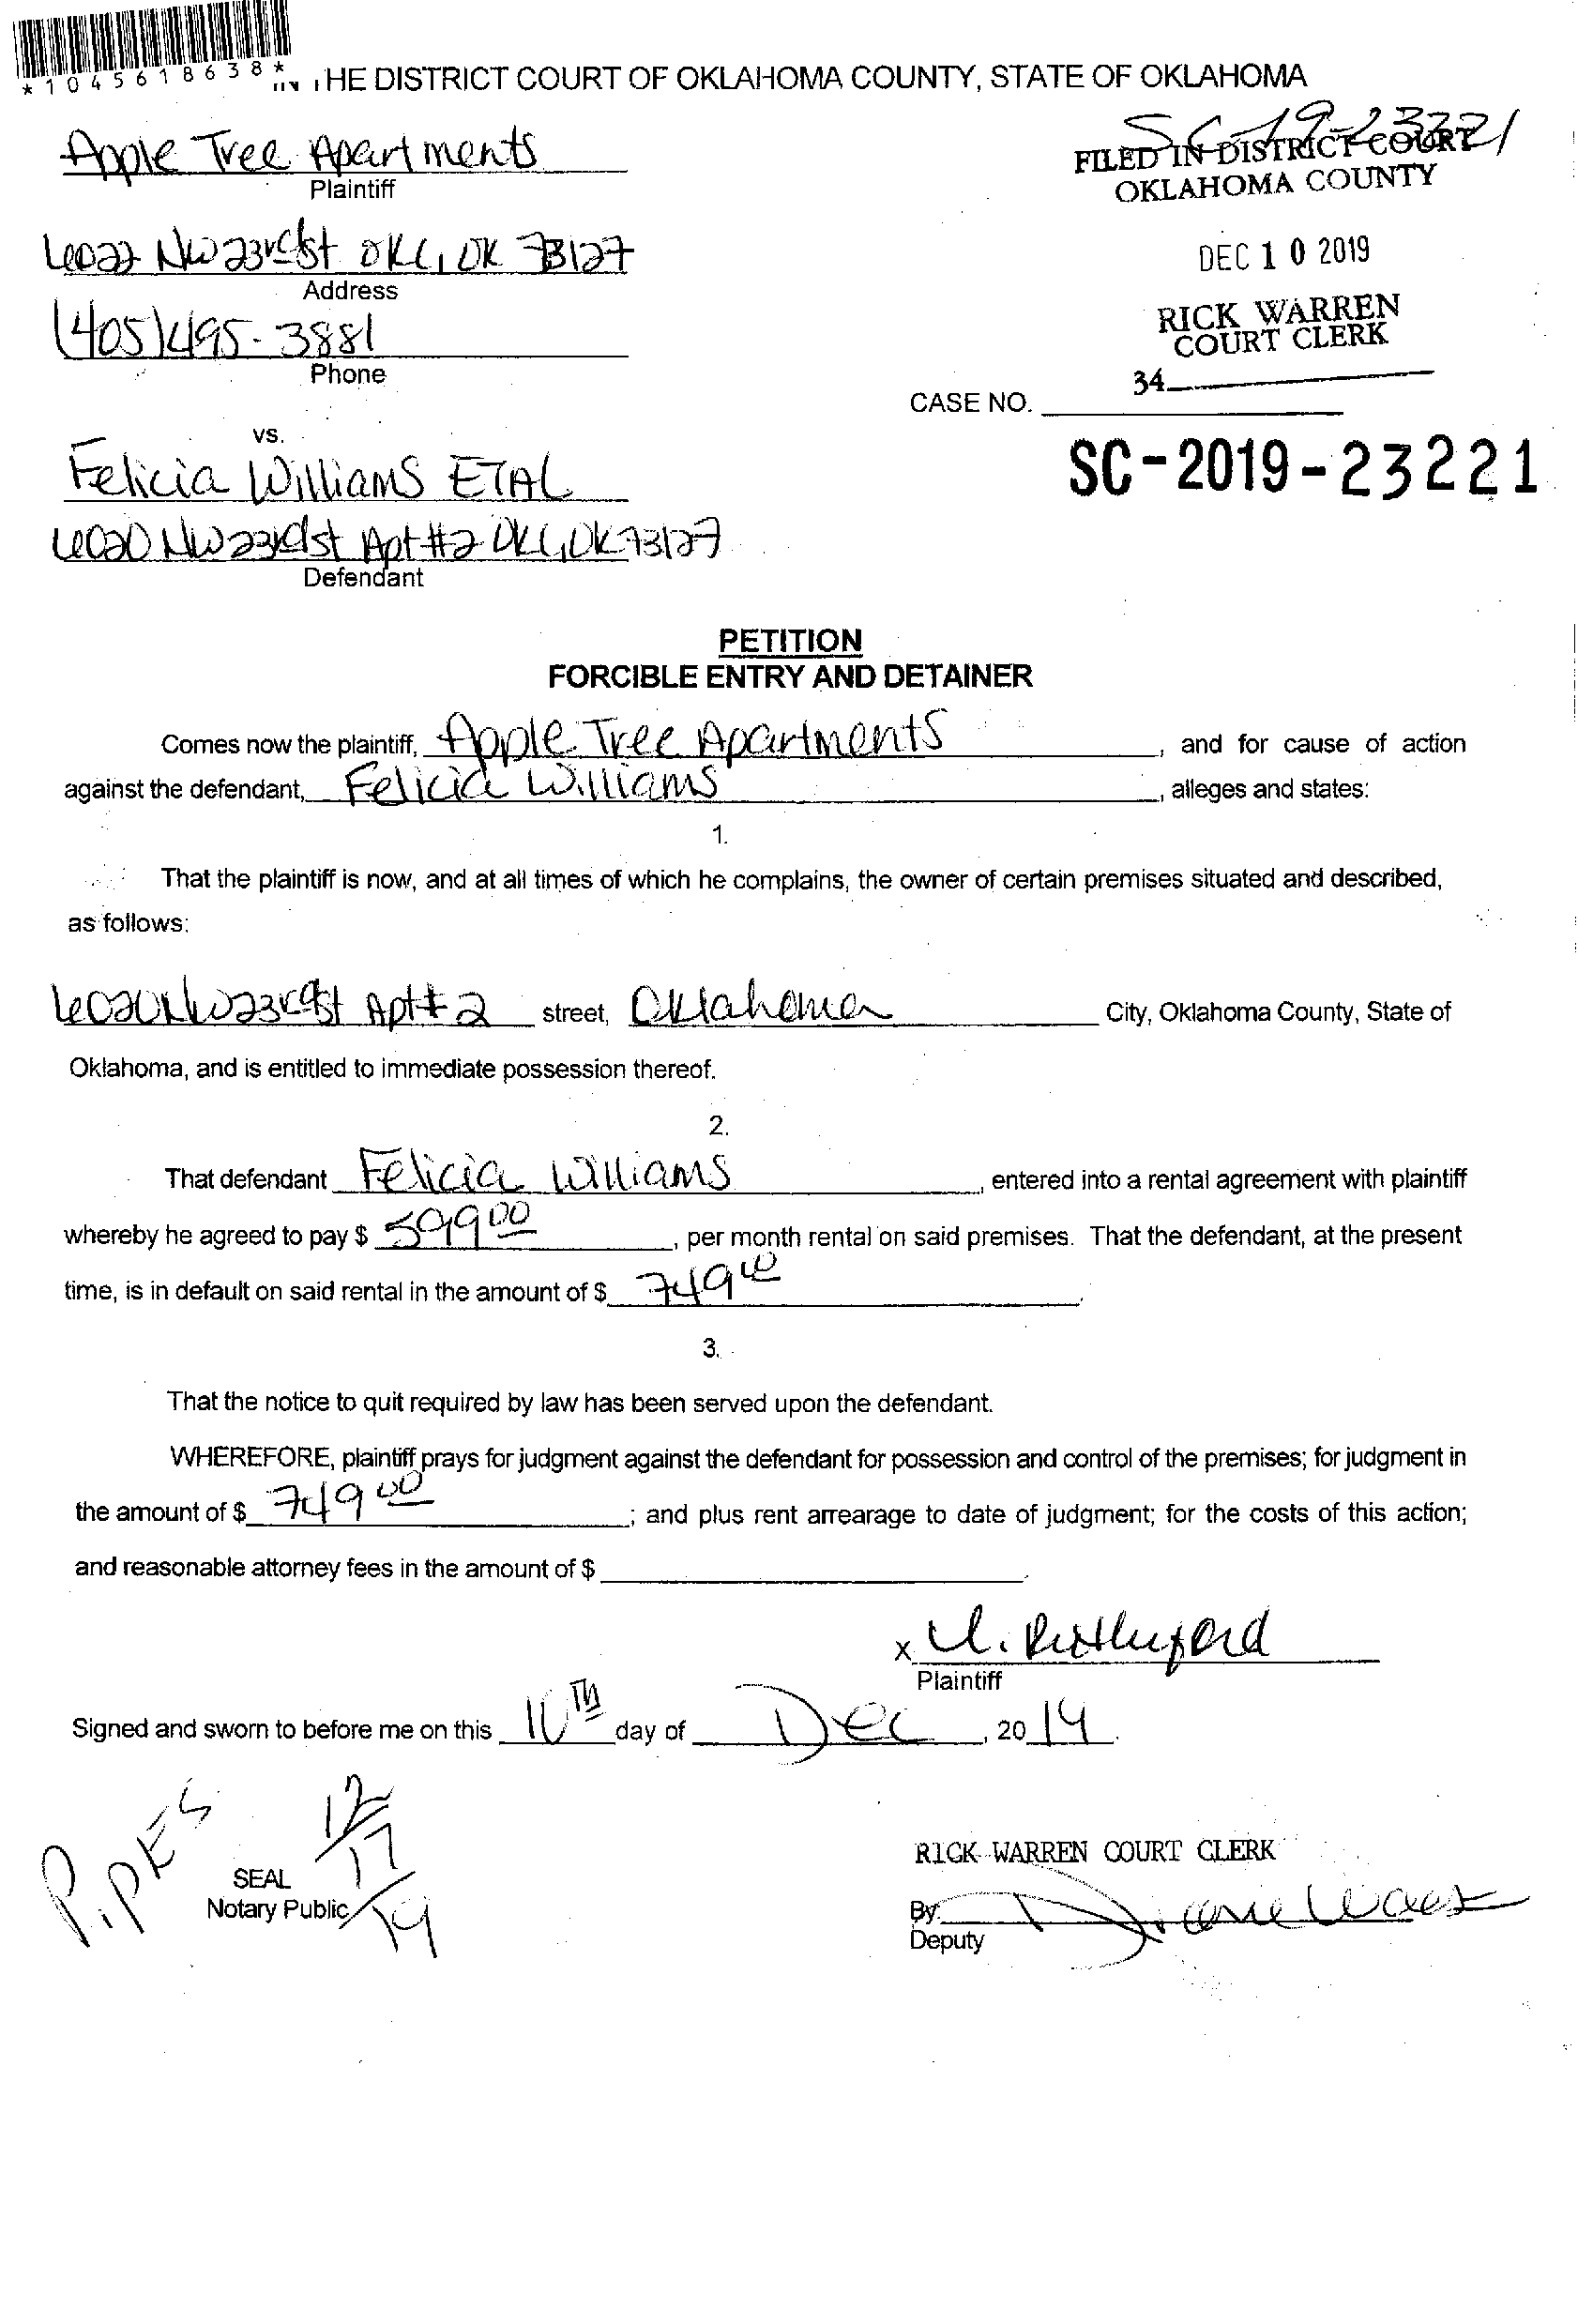 *1045618638*
HE DISTRICT COURT OF OKLAHOMA COUNTY, STATE OF OKLAHOMA
Apple Tree Apartments
Plaintiff
SC-19-23221
FILED IN DISTRICT COURT
OKLAHOMA COUNTY
6022 NW 23rd st OKC, OK 73127
Address
DEC 10 2019
(405) 495-3881
Phone
RICK WARREN
COURT CLERK
34
CASE NO.
SC-2019-23221
vs.
Felicia Williams ETAL
6020 NW 23rd st Apt #2 OKC, OK 73127
Defendant
PETITION
FORCIBLE ENTRY AND DETAINER
Comes now the plaintiff, Apple Tree Apartments, and for cause of action
against the defendant, Felicia Williams, alleges and states:
1.
That the plaintiff is now, and at all times of which he complains, the owner of certain premises situated and described,
as follows:
6020 NW 23rd st Apt# 2 street, Oklahoma City, Oklahoma County, State of
Oklahoma, and is entitled to immediate possession thereof.
2.
That defendant Felicia Williams, entered into a rental agreement with plaintiff
whereby he agreed to pay $ 599 00, per month rental on said premises. That the defendant, at the present
time, is in default on said rental in the amount of $ 749 00.
3.
That the notice to quit required by law has been served upon the defendant.
WHEREFORE, plaintiff prays for judgment against the defendant for possession and control of the premises; for judgment in
the amount of $ 749 00; and plus rent arrearage to date of judgment; for the costs of this action;
and reasonable attorney fees in the amount of $
x Rutherford
Plaintiff
Signed and sworn to before me on this 10TH day of Dec, 20 19.
PiPKES
12/17/19
SEAL
Notary Public
RICK WARREN COURT CLERK
By:
Deputy